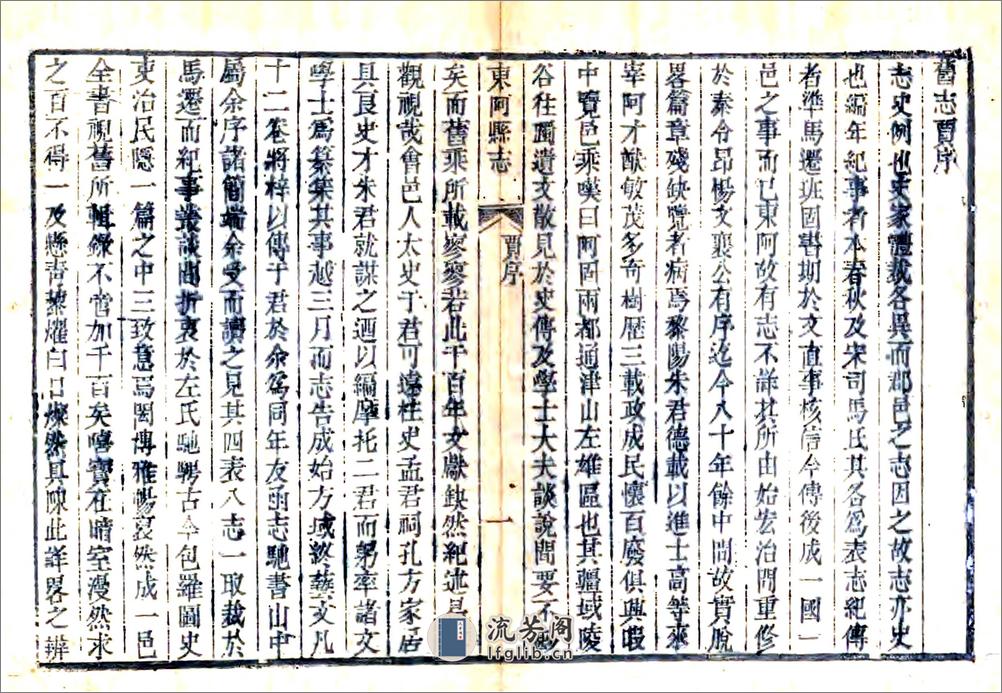 舊志賈序
志史例也史家體裁各異而郡邑之志因之故志亦史
也編年紀事者本春秋及宋司馬氏其各為表志紀傳
者準馬遷班固書期於文直事核信今傳後成一國一
邑之事而已東阿故有志不詳其所由始宏治間重修
於秦令昂楊文襄公有序迄今八十年餘中間故實脫
畧篇章殘缺覽者病焉黎陽朱君德載以進士高等來
宰阿才猷敏茂多奇樹歷三載政成民懷百廢俱興暇
中覽邑乘嘆曰阿固兩都通津山左雄區也其疆域陵
谷往躅遺文散見於史傳及學士大夫談說間要不
東阿縣志
賈序
一
矣而舊乘所載寥寥若此千百年文獻缺然紀述
觀視哉會邑人太史于君可遠柱史孟君祠孔方家居
具良史才朱君就謀之迺以編摩托二君而躬率諸文
學士為纂集其事越三月而志告成始方域終藝文凡
十二卷將梓以傳于君於余為同年友函志馳書山中
屬余序諸簡端余受而讀之見其四表八志一取裁於
馬遷而紀事叢談間折衷於左氏馳騁古今包羅圖史
吏治民隱一篇之中三致意焉閎博雅暢裒然成一邑
全書視舊所輯錄不啻加千百矣嘻寶在暗室漫然求
之百不得一及懸青藜燿白日燦然具陳此詳畧之辨
流芳阁
lfglib.cn